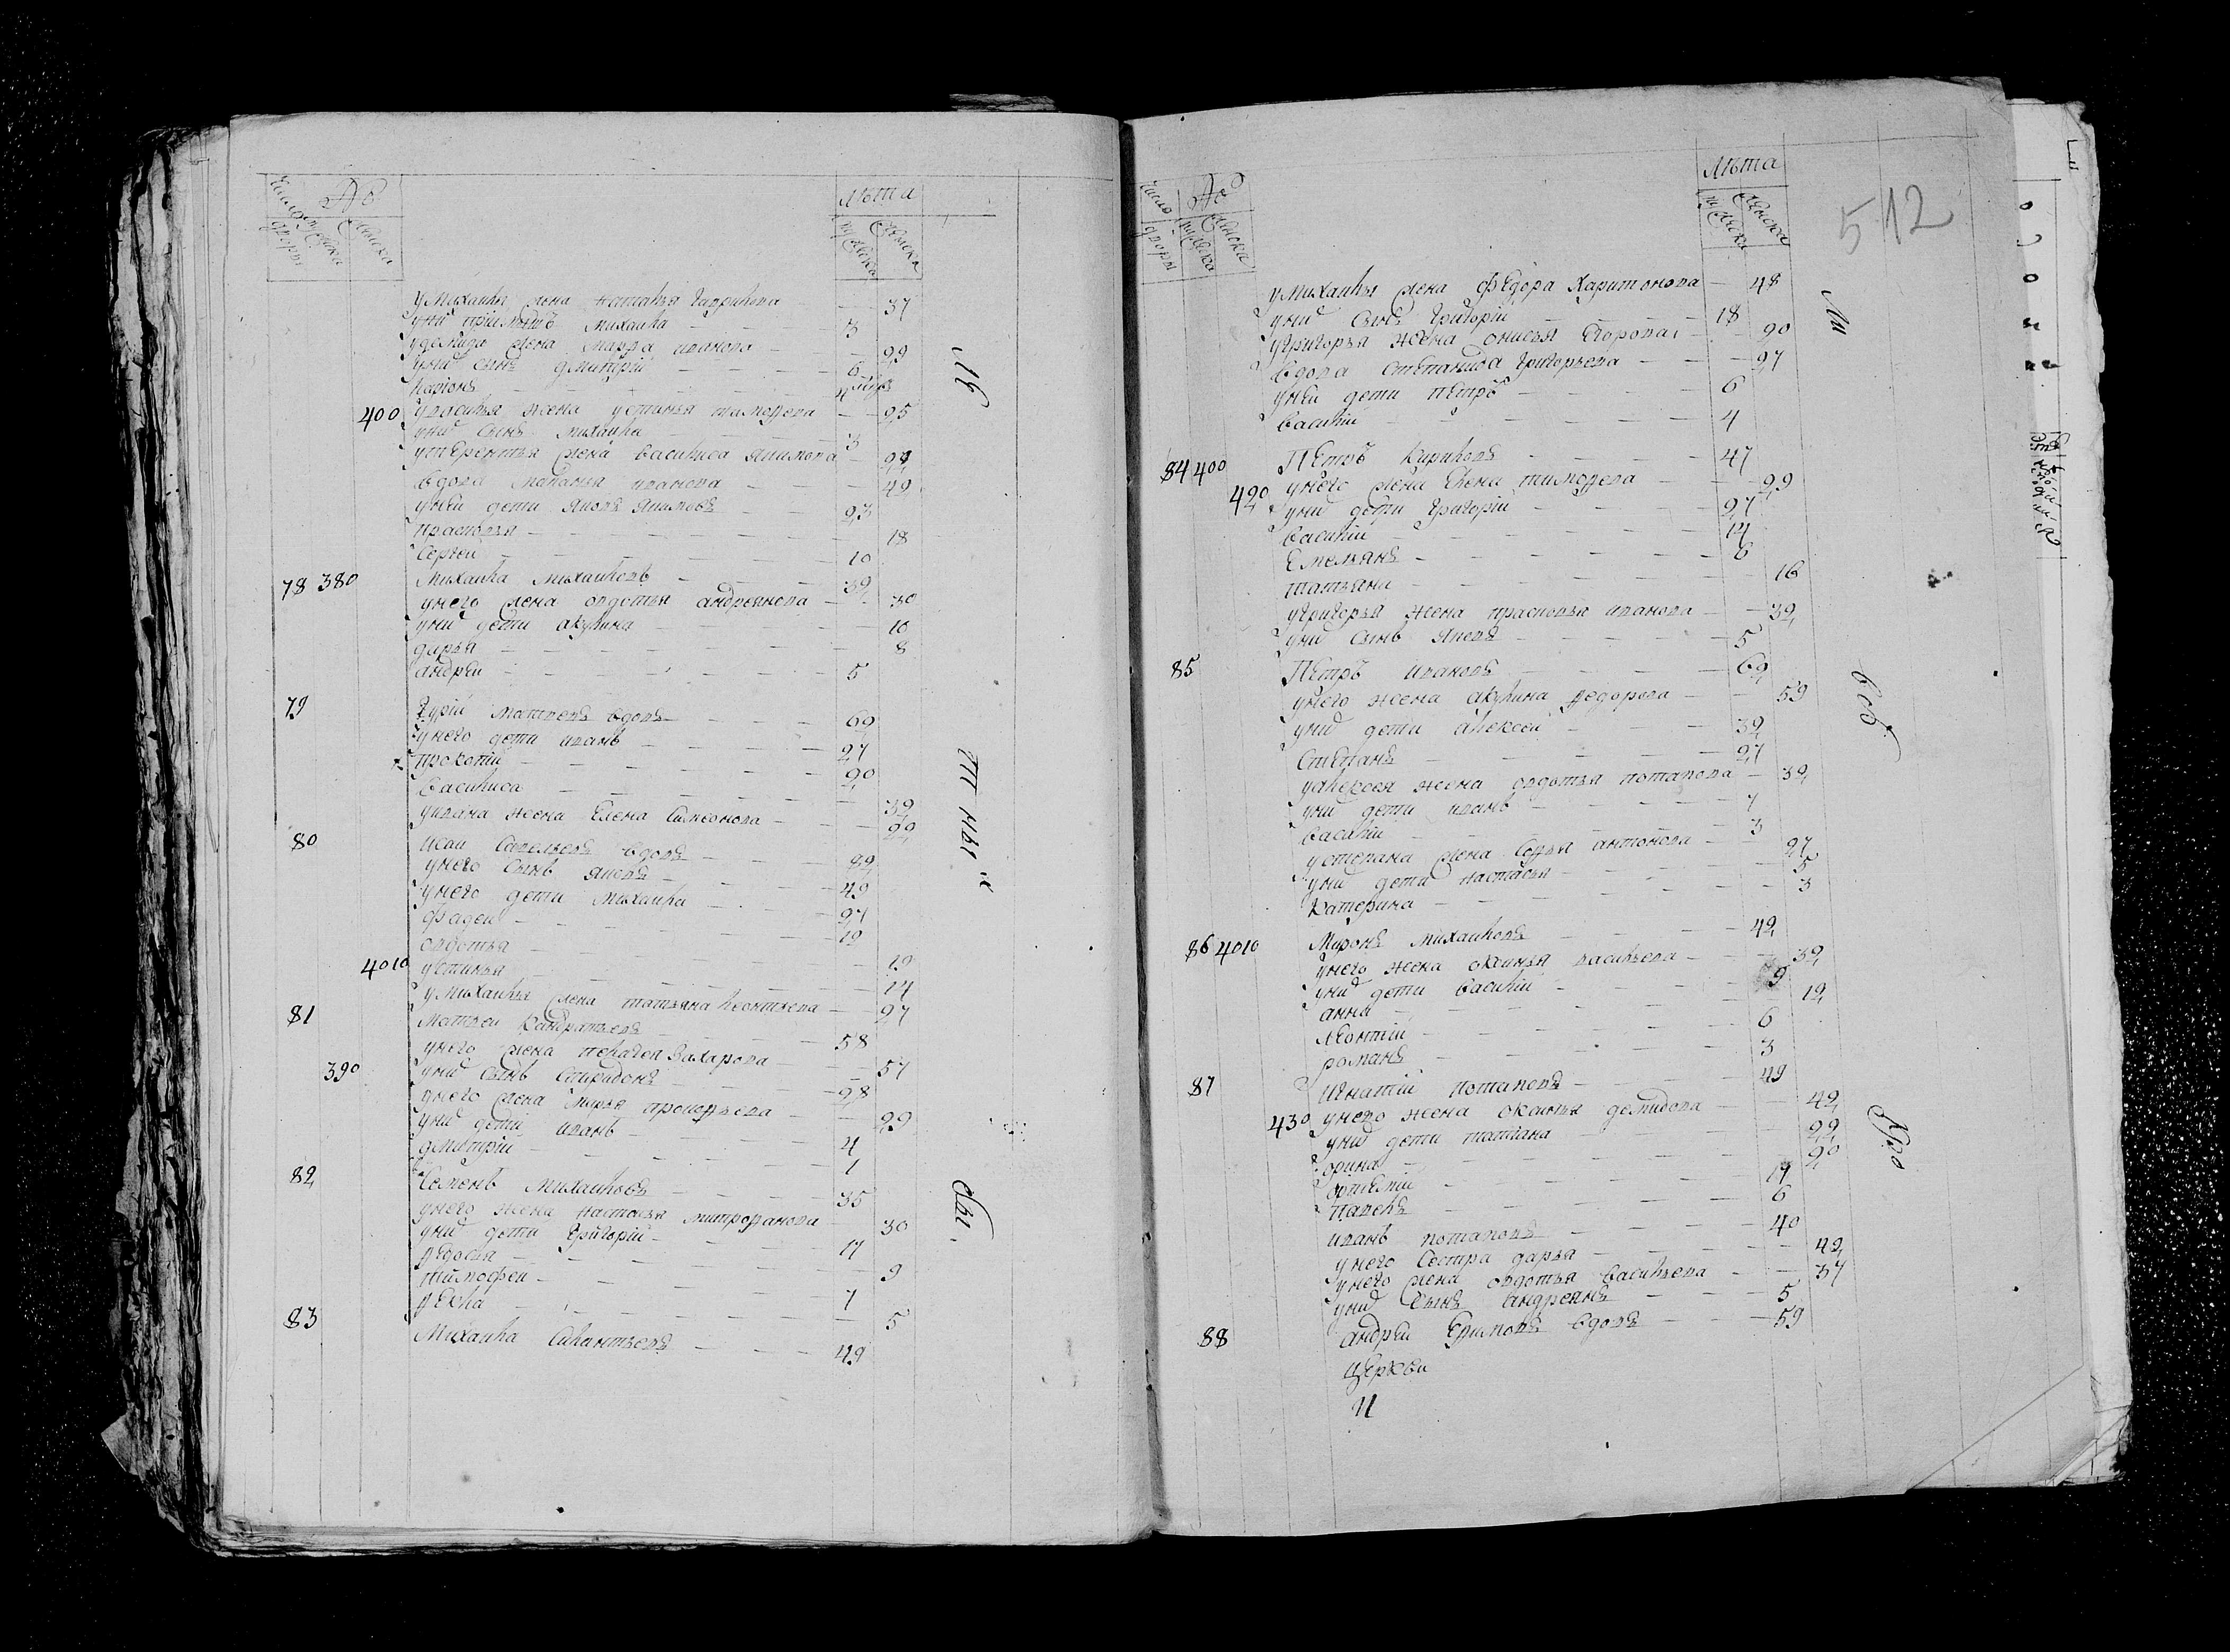 Число дворы № мужеска женска Лѣта мужеска женска
у Михаилы жена Наталья Гаврилова — 37
у них приимышъ Михаила — 3
у Демида жена Марфа Иванова — 29
у них сынъ Дмитрій — 6
Ларионъ
400 у Василья жена Устинья Тимофева — 25
у них сынъ Михаила — 3
у Терентья жена Василиса Якимова
вдова Маланья Иванова — 49
у ней дети Яковъ Якимовъ — 23
Прасковья — 18
Сергеи — 10
78 380 Михаила Михаиловъ — 32
у него жена Овдотья Андреянова — 30
у них дети Акулина — 10
Дарья — 8
Андреи — 5
79 Гурій Матвеевъ вдовъ — 62
у него дети Иванъ — 27
Прокопій — 20
Василиса — 32
у Ивана жена Елена Симеонова — 22
80 Исаи Савельевъ вдовъ
у него сынъ Яковъ — 49
у него дети Михаила — 27
Фадеи — 19
Овдотья — 19
4010 Устинья — 14
у Михаилы жена Татьяна Леонтьева — 27
81 Матвеи Кандратьевъ — 58
у него жена Пелагея Захарова — 57
390 у них сынъ Спиридонъ — 28
у него жена Марья Прокофьева — 29
у них дети Иванъ — 4
Дмитрій — 1
82 Семенъ Михаиловъ — 35
у него жена Настасья Митрофанова — 30
у них дети Григорій — 17
Федосья — 9
Тимофеи — 7
Фекла — 5
83 Михаила Силантьевъ — 49
ты
ны
Число дворы № мужеска женска Лѣта мужеска женска
512
у Михаилы жена Федора Харитонова — 48
у них сынъ Григорій — 18
у Григорья жена Онисья Егорова — 20
вдова Степанида Григорьева — 27
у ней дети Петръ — 6
Василій — 4
84 400 Петръ Кириловъ — 47
420 у него жена Елена Тимофева — 29
у них дети Григорій — 27
Василій — 14
Емельянъ — 6
Татьяна — 16
у Григорья жена Прасковья Иванова — 32
у них сынъ Яковъ — 5
85 Петръ Ивановъ — 62
у него жена Акулина Федорова — 59
у них дети Алексеи — 32
Степанъ — 27
у Алексея жена Овдотья Потапова — 32
у них дети Иванъ — 7
Василій — 3
у Степана жена Софья Антонова — 27
у них дети Настасья — 5
Катерина — 3
86 4010 Миронъ Михаиловъ — 42
у него жена Оксинья Васильева — 32
у них дети Василій — 9
Анна — 12
Леонтій — 6
Романъ — 3
87 Игнатій Потаповъ — 49
430 у него жена Оксинья Демидова — 42
у них дети Татіана — 22
Орина — 20
Ортемій — 17
Павелъ — 6
Иванъ Потаповъ — 40
у него сестра Дарья — 42
у него жена Овдотья Васильева — 37
у них сынъ Андреянъ — 5
88 Андреи Ефимовъ вдовъ — 59
Церкви
И